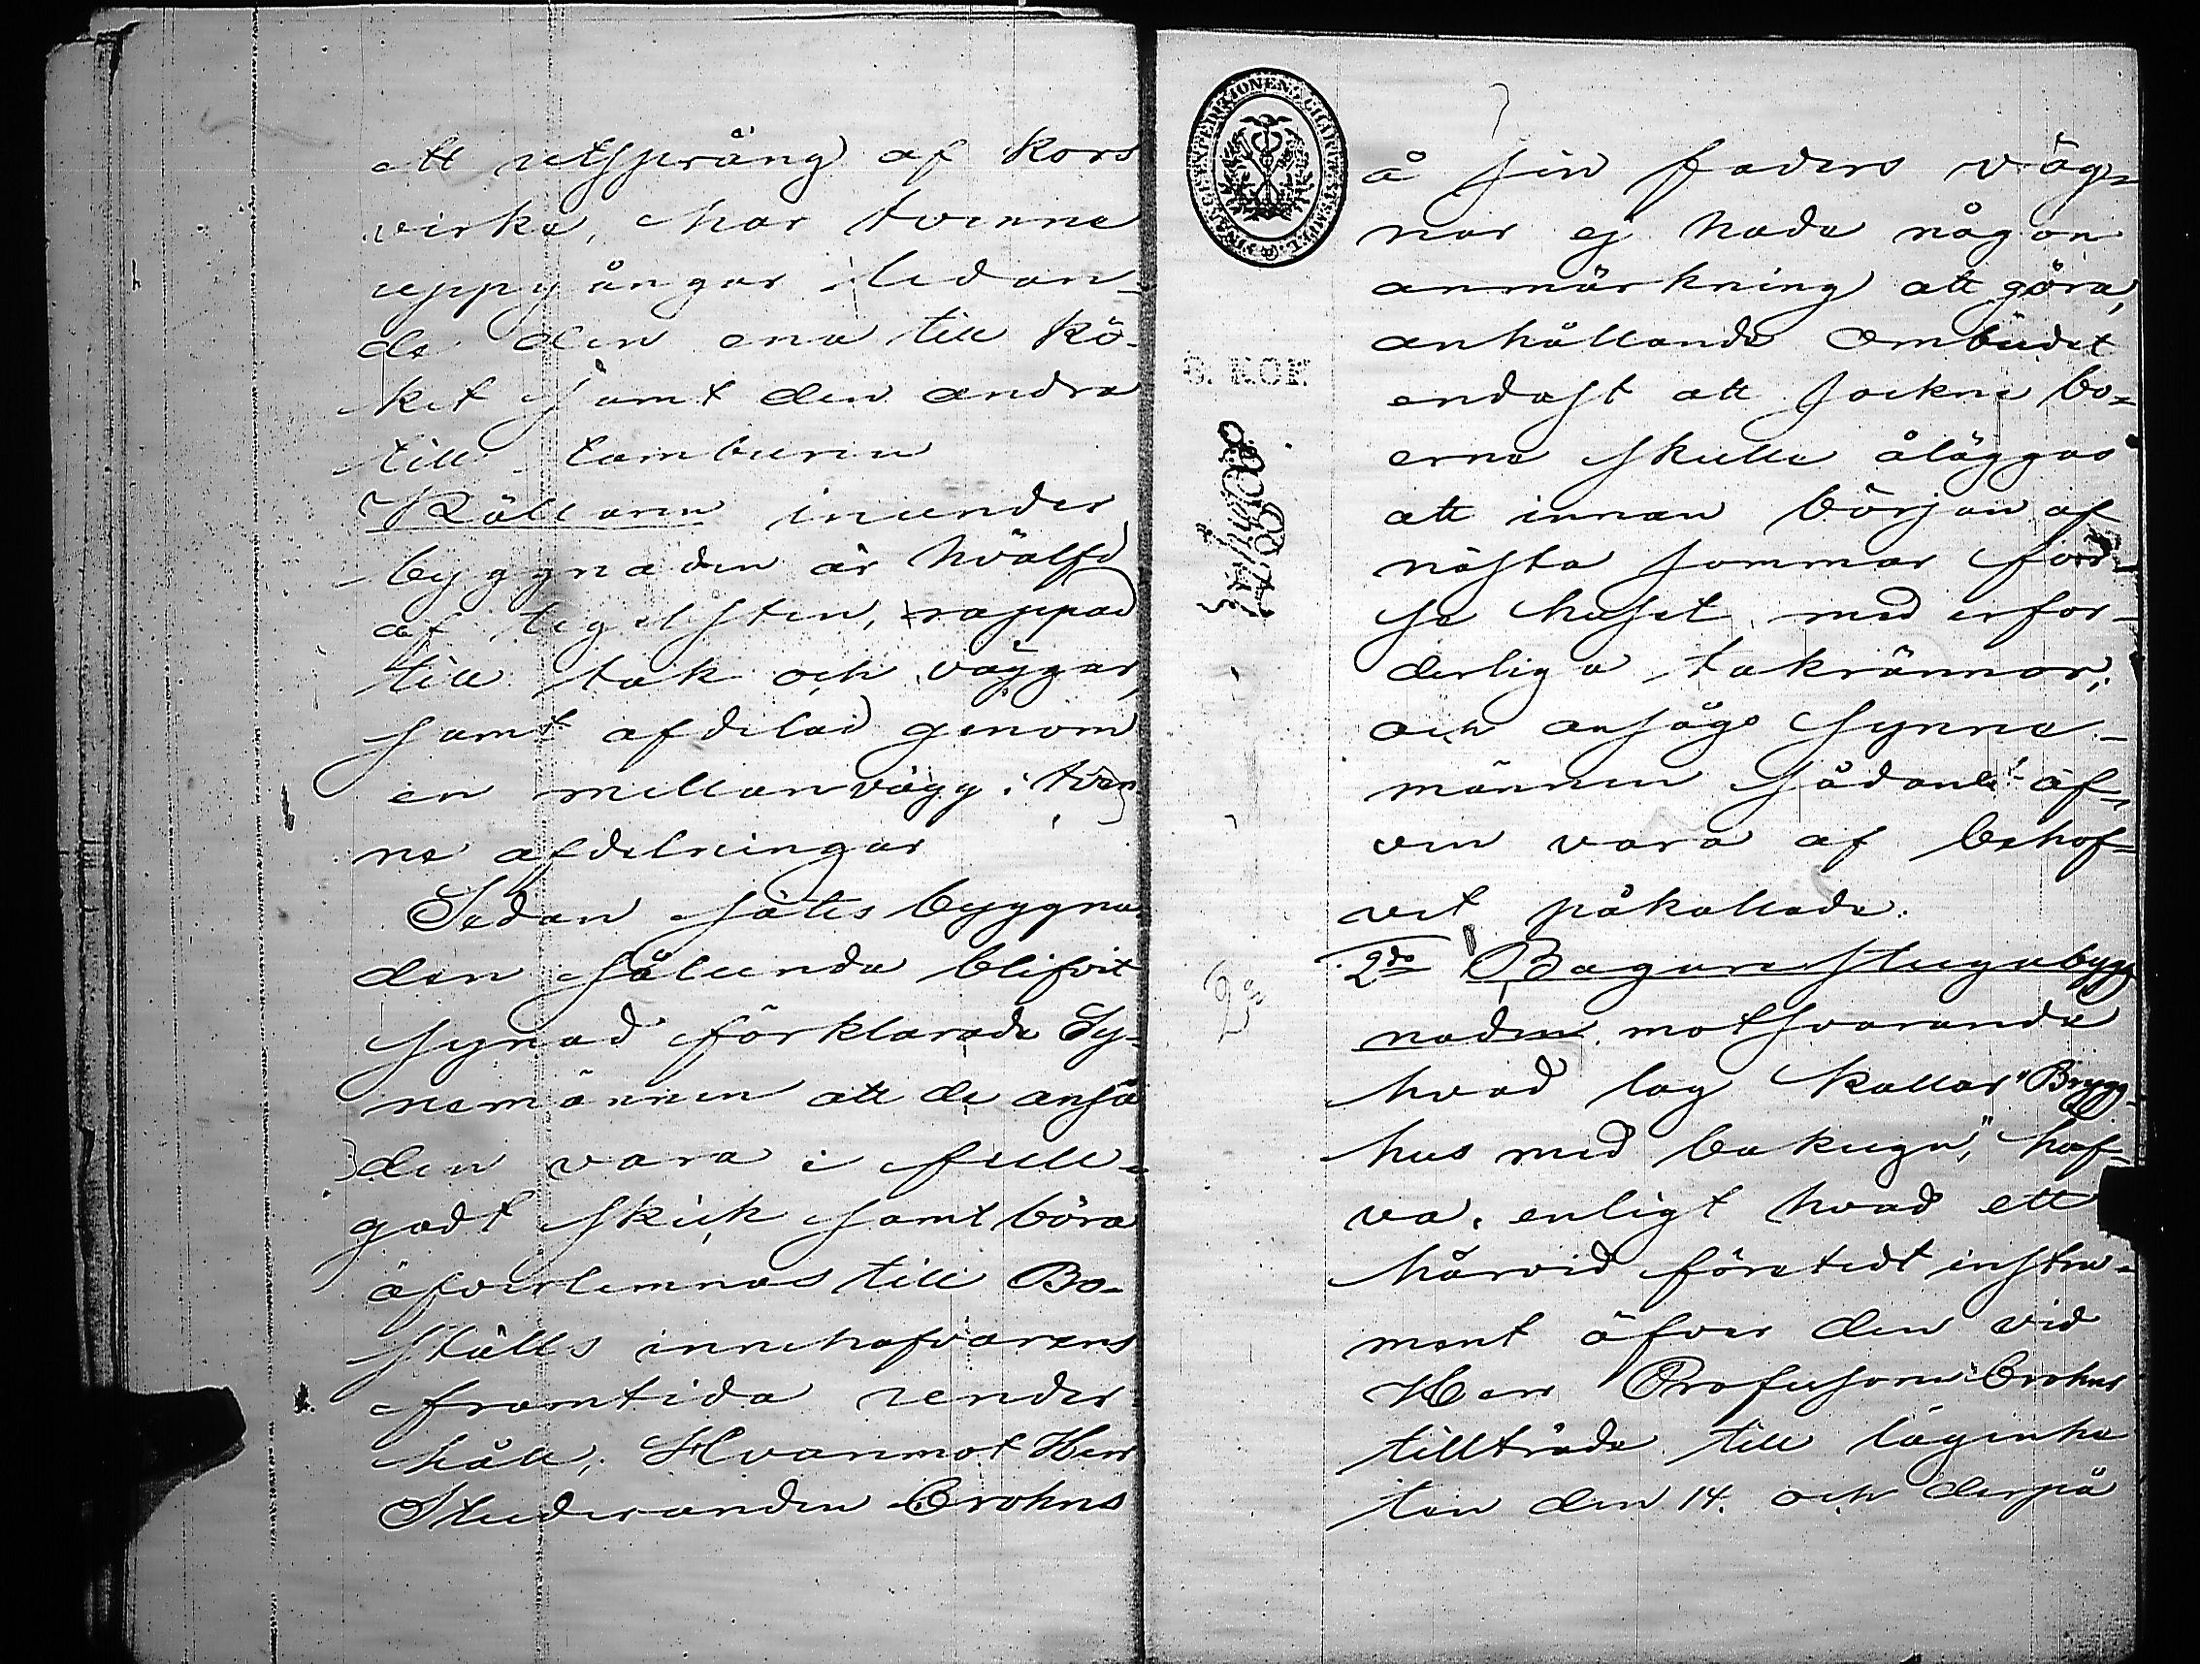 ett utsprång af kors
virke, har tvenne
uppgångar ledan-
de den ena till kö-
ket samt den andra
till tamburen
Källaren inunder
byggnaden är hvälfd
af tegelsten, rappad
till tak och väggar,
samt afdelad genom
en mellanvägg i tven
ne afdelningar
Sedan sätesbyggna-
den sålunda blifvit
synad förklarade Sy-
nemännen att de anså
den vara i full-
godt skick samt böra
öfverlemnas till Bo-
ställs innehafvarens
framtida under-
håll; Hvaremot Herr
Studeranden Crohns
FINANCE EXPEDITIONEN
6. KOP.
å sin faders väg-
nar ej hade någon
anmärkning att göra,
anhållande Ombudet
endast att sockne bo-
erne skulle åläggas
att innan början af
nästa sommar för-
se huset med erfor-
derliga takrännor;
och ansågo Synne-
männen sådant äf-
ven vara af behof-
vet påkallade.
2do Bagarestugubygg
naden motsvarande
hvad lag kallar "Brygg-
hus med bakugn", haf-
va, enligt hvad ett
härvid företedt instru-
ment öfver den vid
Herr Professorn Crohns
tillträde till lägenhe
ten den 14. och derpå